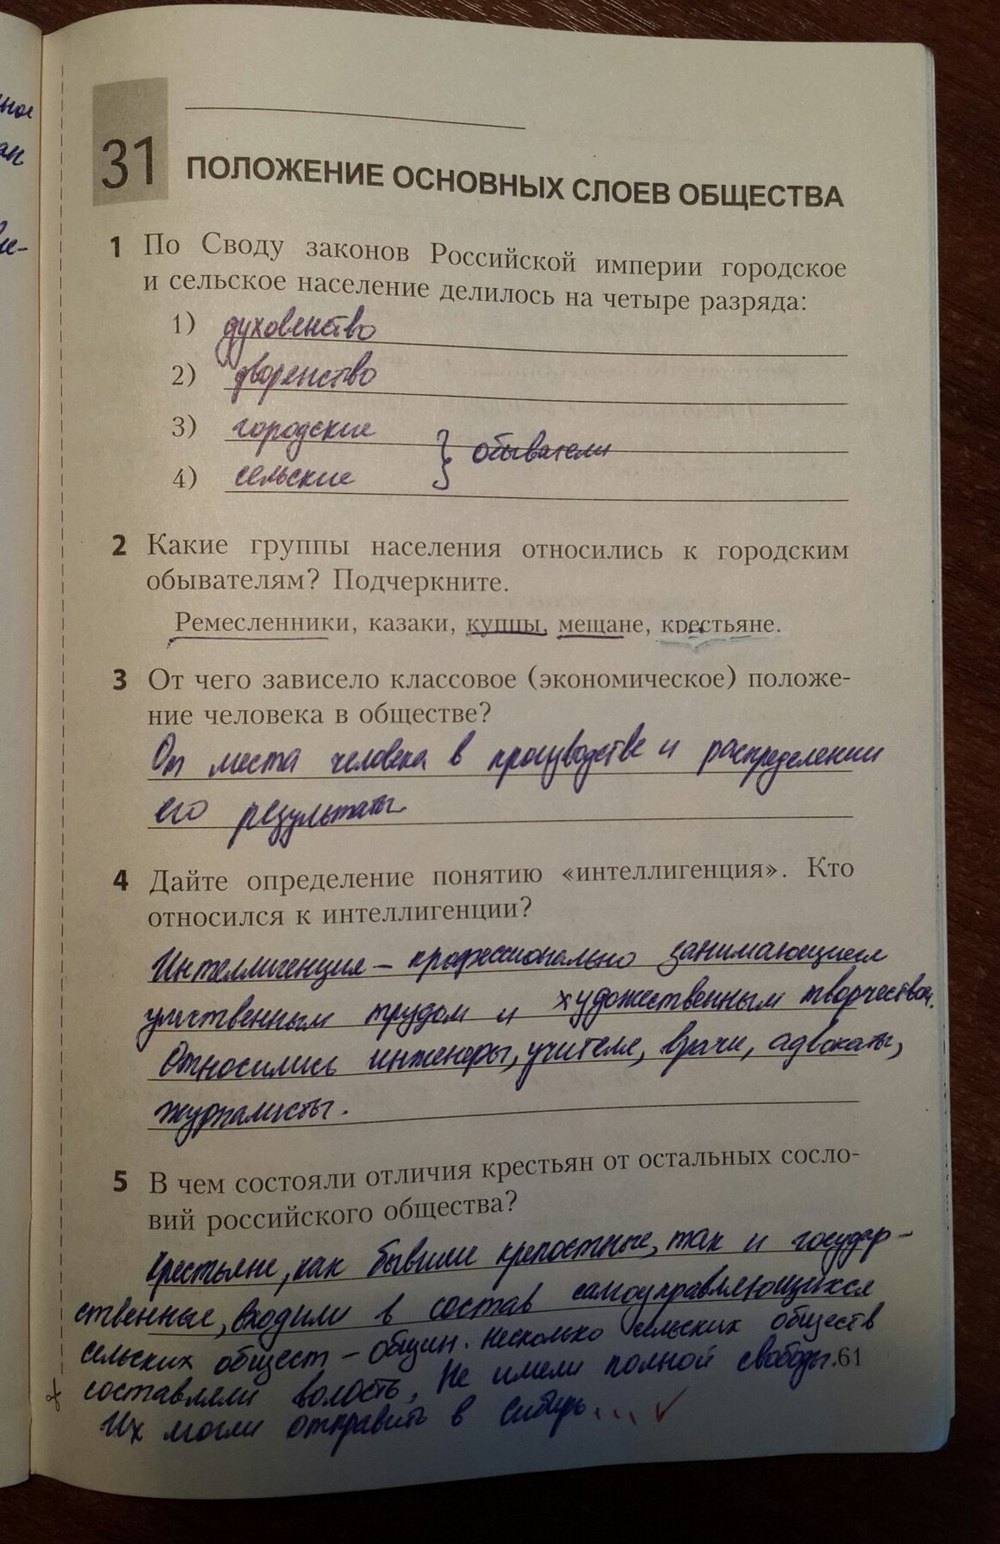 ное
ан
ие-
31 ПОЛОЖЕНИЕ ОСНОВНЫХ СЛОЕВ ОБЩЕСТВА
1 По Своду законов Российской империи городское
и сельское население делилось на четыре разряда:
1) духовенство
2) дворенство
3) городские
} обыватели
4) сельские
2 Какие группы населения относились к городским
обывателям? Подчеркните.
Ремесленники, казаки, купцы, мещане, крестьяне.
3 От чего зависело классовое (экономическое) положе-
ние человека в обществе?
От места человека в производстве и распределении
его результаты
4 Дайте определение понятию «интеллигенция». Кто
относился к интеллигенции?
Интеллигенция – профессионально занимающиеся
умственным трудом и художественным творчеством.
Относились инженеры, учителе, врачи, адвокаты,
журналисты.
5 В чем состояли отличия крестьян от остальных сосло-
вий российского общества?
Крестьяне, как бывшие крепостные, так и государ-
ственные, входили в состав самоуправляющихся
сельских общест – общин. Несколько сельских обществ
составляли волость. Не имели полной свободы. 61
Их могли отправить в Сибирь...